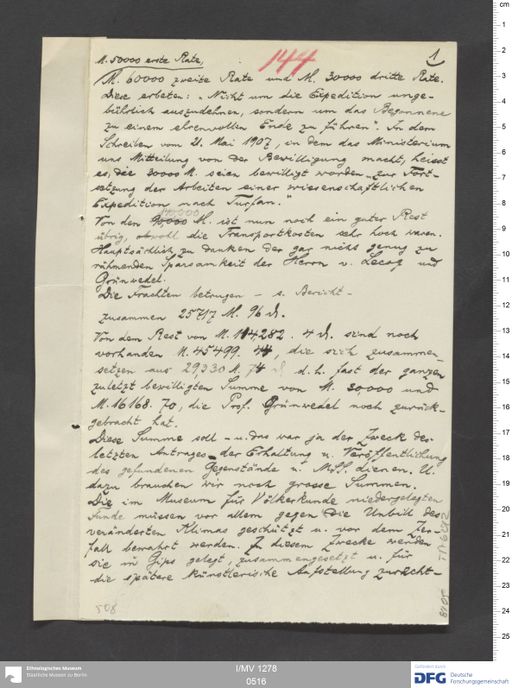 1
144
M. 50000 erste Rate,
M. 60000 zweite Rate und M. 30000 dritte Rate.
Diese erbeten: „Nicht um die Expedition unge-
bührlich auszudehnen, sondern um das Begonnene
zu einem ehrenvollen Ende zu führen". In dem
Schreiben vom 21. Mai 1907, in dem das Ministerium
uns Mitteilung von der Bewilligung macht, heisst
es, die 30000 M. seien bewilligt worden „zur Fort-
setzung der Arbeiten einer wissenschaftlichen
Expedition nach Turfan."
Von den 140000 M. ist nun noch ein guter Rest
übrig, obwohl die Transportkosten sehr hoch waren.
Hauptsächlich zu danken der gar nicht genug zu
rühmenden Sparsamkeit der Herrn v. Lecoq und
Grünwedel.
Die Frachten betrugen – s. Bericht –
zusammen 25717 M. 96 d.
Von dem Rest von M. 114282. 4 d. sind noch
vorhanden M. 45499. 44, die sich zusammen-
setzen aus 29330 M. 74 d. d. h. fast der ganzen
zuletzt bewilligten Summe von M. 30,000 und
M. 16168. 70, die Prof. Grünwedel noch zurück-
gebracht hat.
Diese Summe soll – u. das war ja der Zweck des
letzten Antrages – der Erhaltung u. Veröffentlichung
des gefundenen Gegenstände u. MSS. dienen. U.
dazu brauchen wir noch grosse Summen.
Die im Museum für Völkerkunde niedergelegten
Funde müssen vor allem gegen die Unbill des
veränderten Klimas geschützt u. vor dem Zer-
fall bewahrt werden. Zu diesem Zwecke werden
sie in Gips gelegt, zusammengesetzt u. für
die spätere künstlerische Aufstellung zurecht-
508
TA 6292
Ethnologisches Museum
Staatliche Museen zu Berlin
I/MV 1278
0516
Gefördert durch
DFG Deutsche
Forschungsgemeinschaft
cm
1
2
3
4
5
6
7
8
9
10
11
12
13
14
15
16
17
18
19
20
21
22
23
24
25